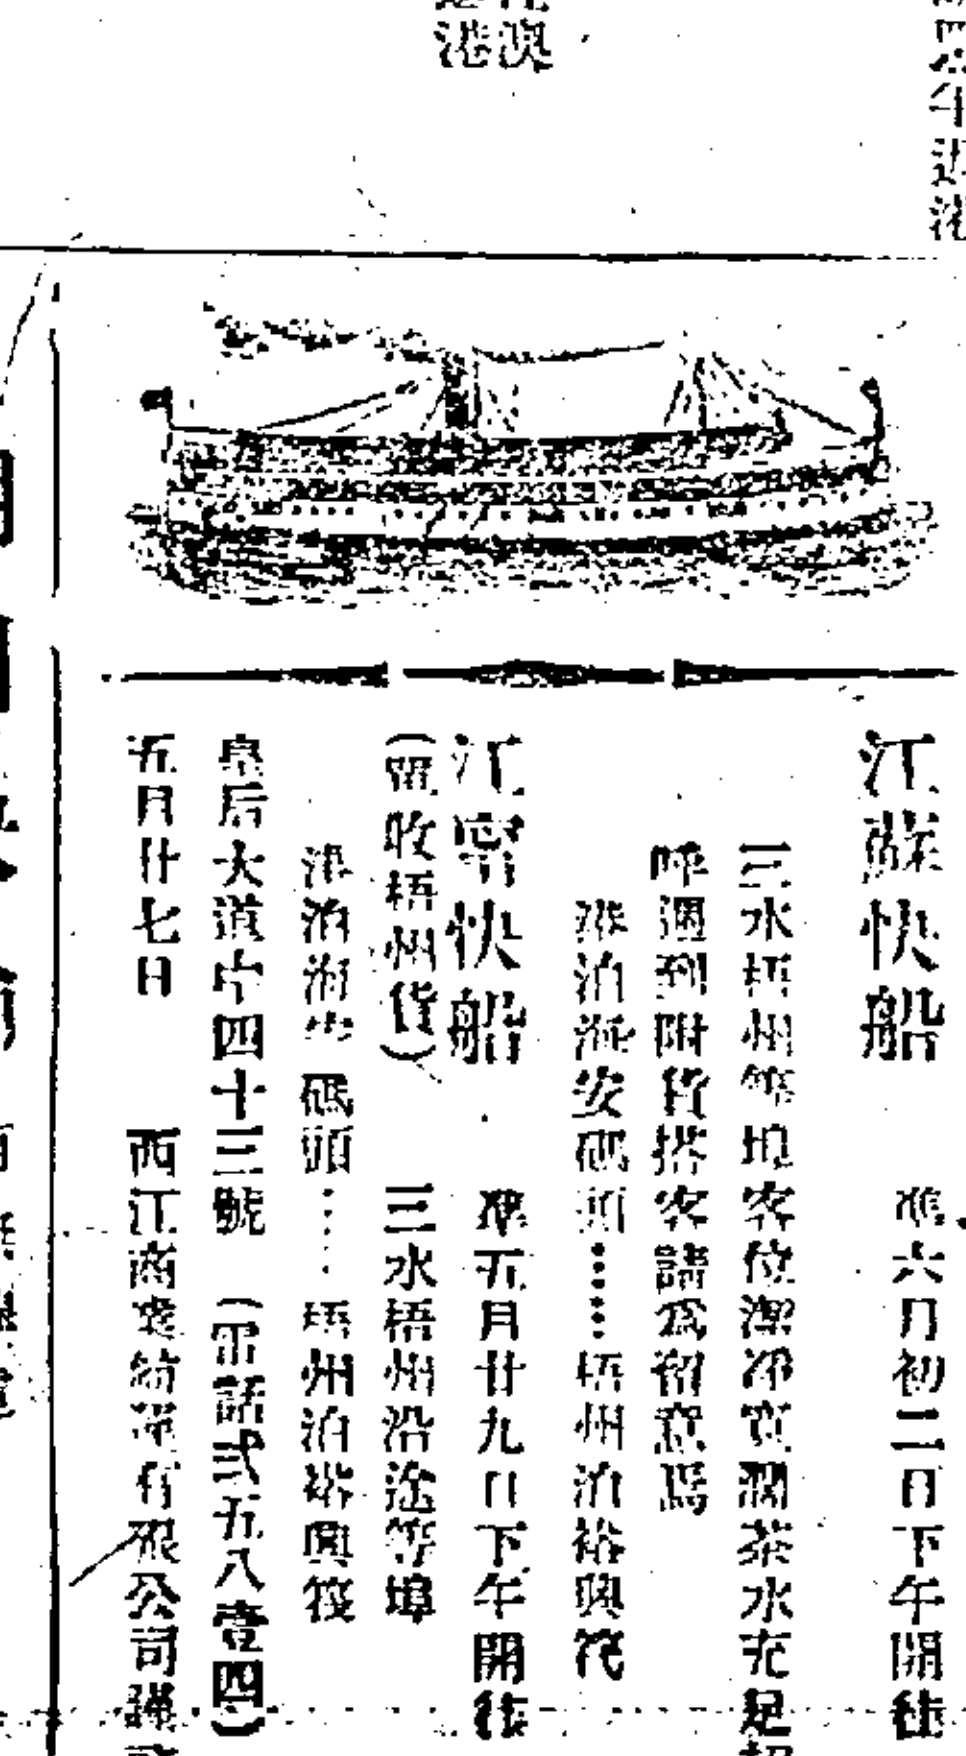 江蘇快船　準六月初二日下午開往
三水梧州等埠客位潔淨寬濶茶水充足招
呼週到附貨搭客請為留意焉
港泊海安碼頭……梧州泊裕興筏
江寧快船　準五月廿九日下午開往
(單收梧州貨)　三水梧州沿途等埠
港泊海安碼頭……梧州泊裕興筏
皇后大道中四十三號　(電話弍五八壹四)
五月廿七日　西江商業有限公司謹
港澳
年港